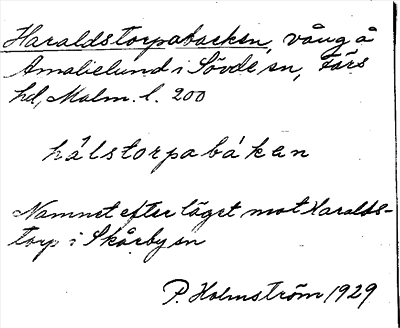 Haraldstorpabacken, vång å
Amalielund i Sövde sn, Färs
hd, Malm. l. 200
hálstorpabákan
Namnet efter läget mot Haralds-
torp i Skårby sn
P. Holmström 1929